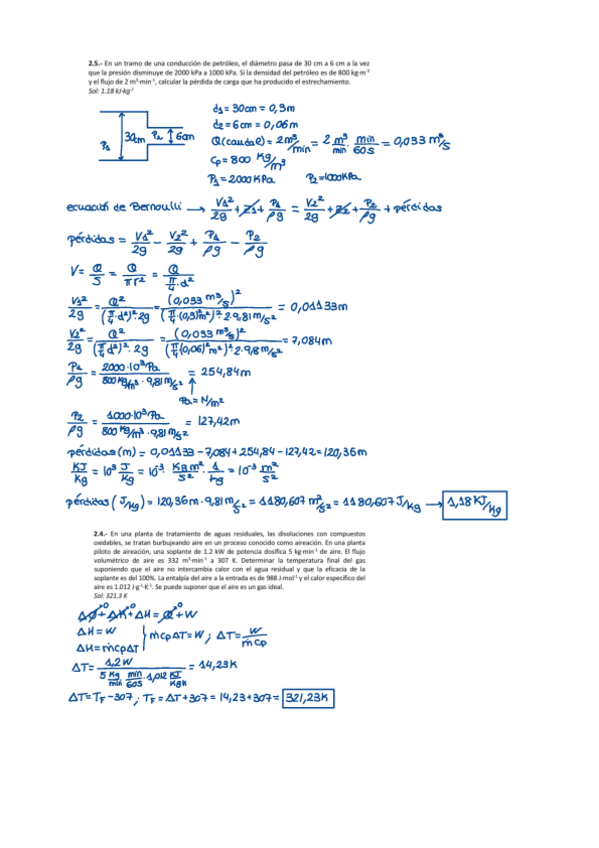 2.5.- En un tramo de una conducción de petróleo, el diámetro pasa de 30 cm a 6 cm a la vez
que la presión disminuye de 2000 kPa a 1000 kPa. Si la densidad del petróleo es de 800 kg·m⁻³
y el flujo de 2 m³·min⁻¹, calcular la pérdida de carga que ha producido el estrechamiento.
Sol: 1.18 kJ·kg⁻¹
P₁ 30cm P₂ 6cm
d₁ = 30cm = 0,3m
d₂ = 6cm = 0,06m
Q(caudal) = 2m³/min = 2 m³/min · min/60s = 0,033 m³/s
Cp = 800 kg/m³
P₁ = 2000KPa P₂ = 1000KPa
ecuación de Bernoulli → V₁²/2g + z₁ + P₁/ρg = V₂²/2g + z₂ + P₂/ρg + pérdidas
pérdidas = V₁²/2g − V₂²/2g + P₁/ρg − P₂/ρg
V = Q/S = Q/πr² = Q/(π/4 · d²)
V₁²/2g = Q²/((π/4 · d²)² · 2g) = (0,033 m³/s)²/((π/4 · (0,3)²m²)² · 2 · 9,81 m/s²) = 0,01133m
V₂²/2g = Q²/((π/4 d²)² · 2g) = (0,033 m³/s)²/((π/4 (0,06)² m²)² · 2 · 9,8 m/s²) = 7,084m
P₁/ρg = 2000·10³Pa/(800 kg/m³ · 9,81 m/s²) = 254,84m
Pa = N/m²
P₂/ρg = 1000·10³Pa/(800 kg/m³ · 9,81 m/s²) = 127,42m
pérdidas (m) = 0,01133 − 7,084 + 254,84 − 127,42 = 120,36m
KJ/Kg = 10³ J/Kg = 10⁻³ · Kg m²/s² · 1/kg = 10⁻³ m²/s²
pérdidas (J/kg) = 120,36m · 9,81 m/s² = 1180,607 m²/s² = 1180,607 J/kg → 1,18 KJ/kg
2.4.- En una planta de tratamiento de aguas residuales, las disoluciones con compuestos
oxidables, se tratan burbujeando aire en un proceso conocido como aireación. En una planta
piloto de aireación, una soplante de 1.2 kW de potencia dosifica 5 kg·min⁻¹ de aire. El flujo
volumétrico de aire es 332 m³·min⁻¹ a 307 K. Determinar la temperatura final del gas
suponiendo que el aire no intercambia calor con el agua residual y que la eficacia de la
soplante es del 100%. La entalpía del aire a la entrada es de 988 J·mol⁻¹ y el calor específico del
aire es 1.012 J·g⁻¹·K⁻¹. Se puede suponer que el aire es un gas ideal.
Sol: 321.3 K
Δϕ⁰ + ΔK⁰ + ΔH = Q⁰ + W
ΔH = W
ΔH = ṁCpΔT
ṁCpΔT = W ; ΔT = W/ṁCp
ΔT = 1,2W/(5 Kg/min · min/60s · 1,012 KJ/KgK) = 14,23K
ΔT = T_F − 307 ; T_F = ΔT + 307 = 14,23 + 307 = 321,23K